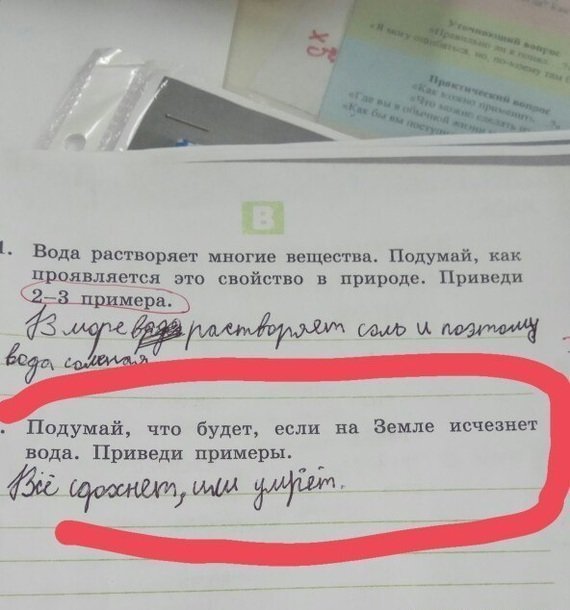 Уточняющий вопрос
«Правильно ли я понял
«Я могу ошибаться, но, по-моему
Практический вопрос
«Как можно применить
«Что можно сделать
«Где вы в обычной жизни
«Как бы вы поступи
х5
В
1. Вода растворяет многие вещества. Подумай, как
проявляется это свойство в природе. Приведи
2–3 примера.
В море растворяет соль и поэтому
вода соленая
. Подумай, что будет, если на Земле исчезнет
вода. Приведи примеры.
Всё сдохнет, или умрёт.